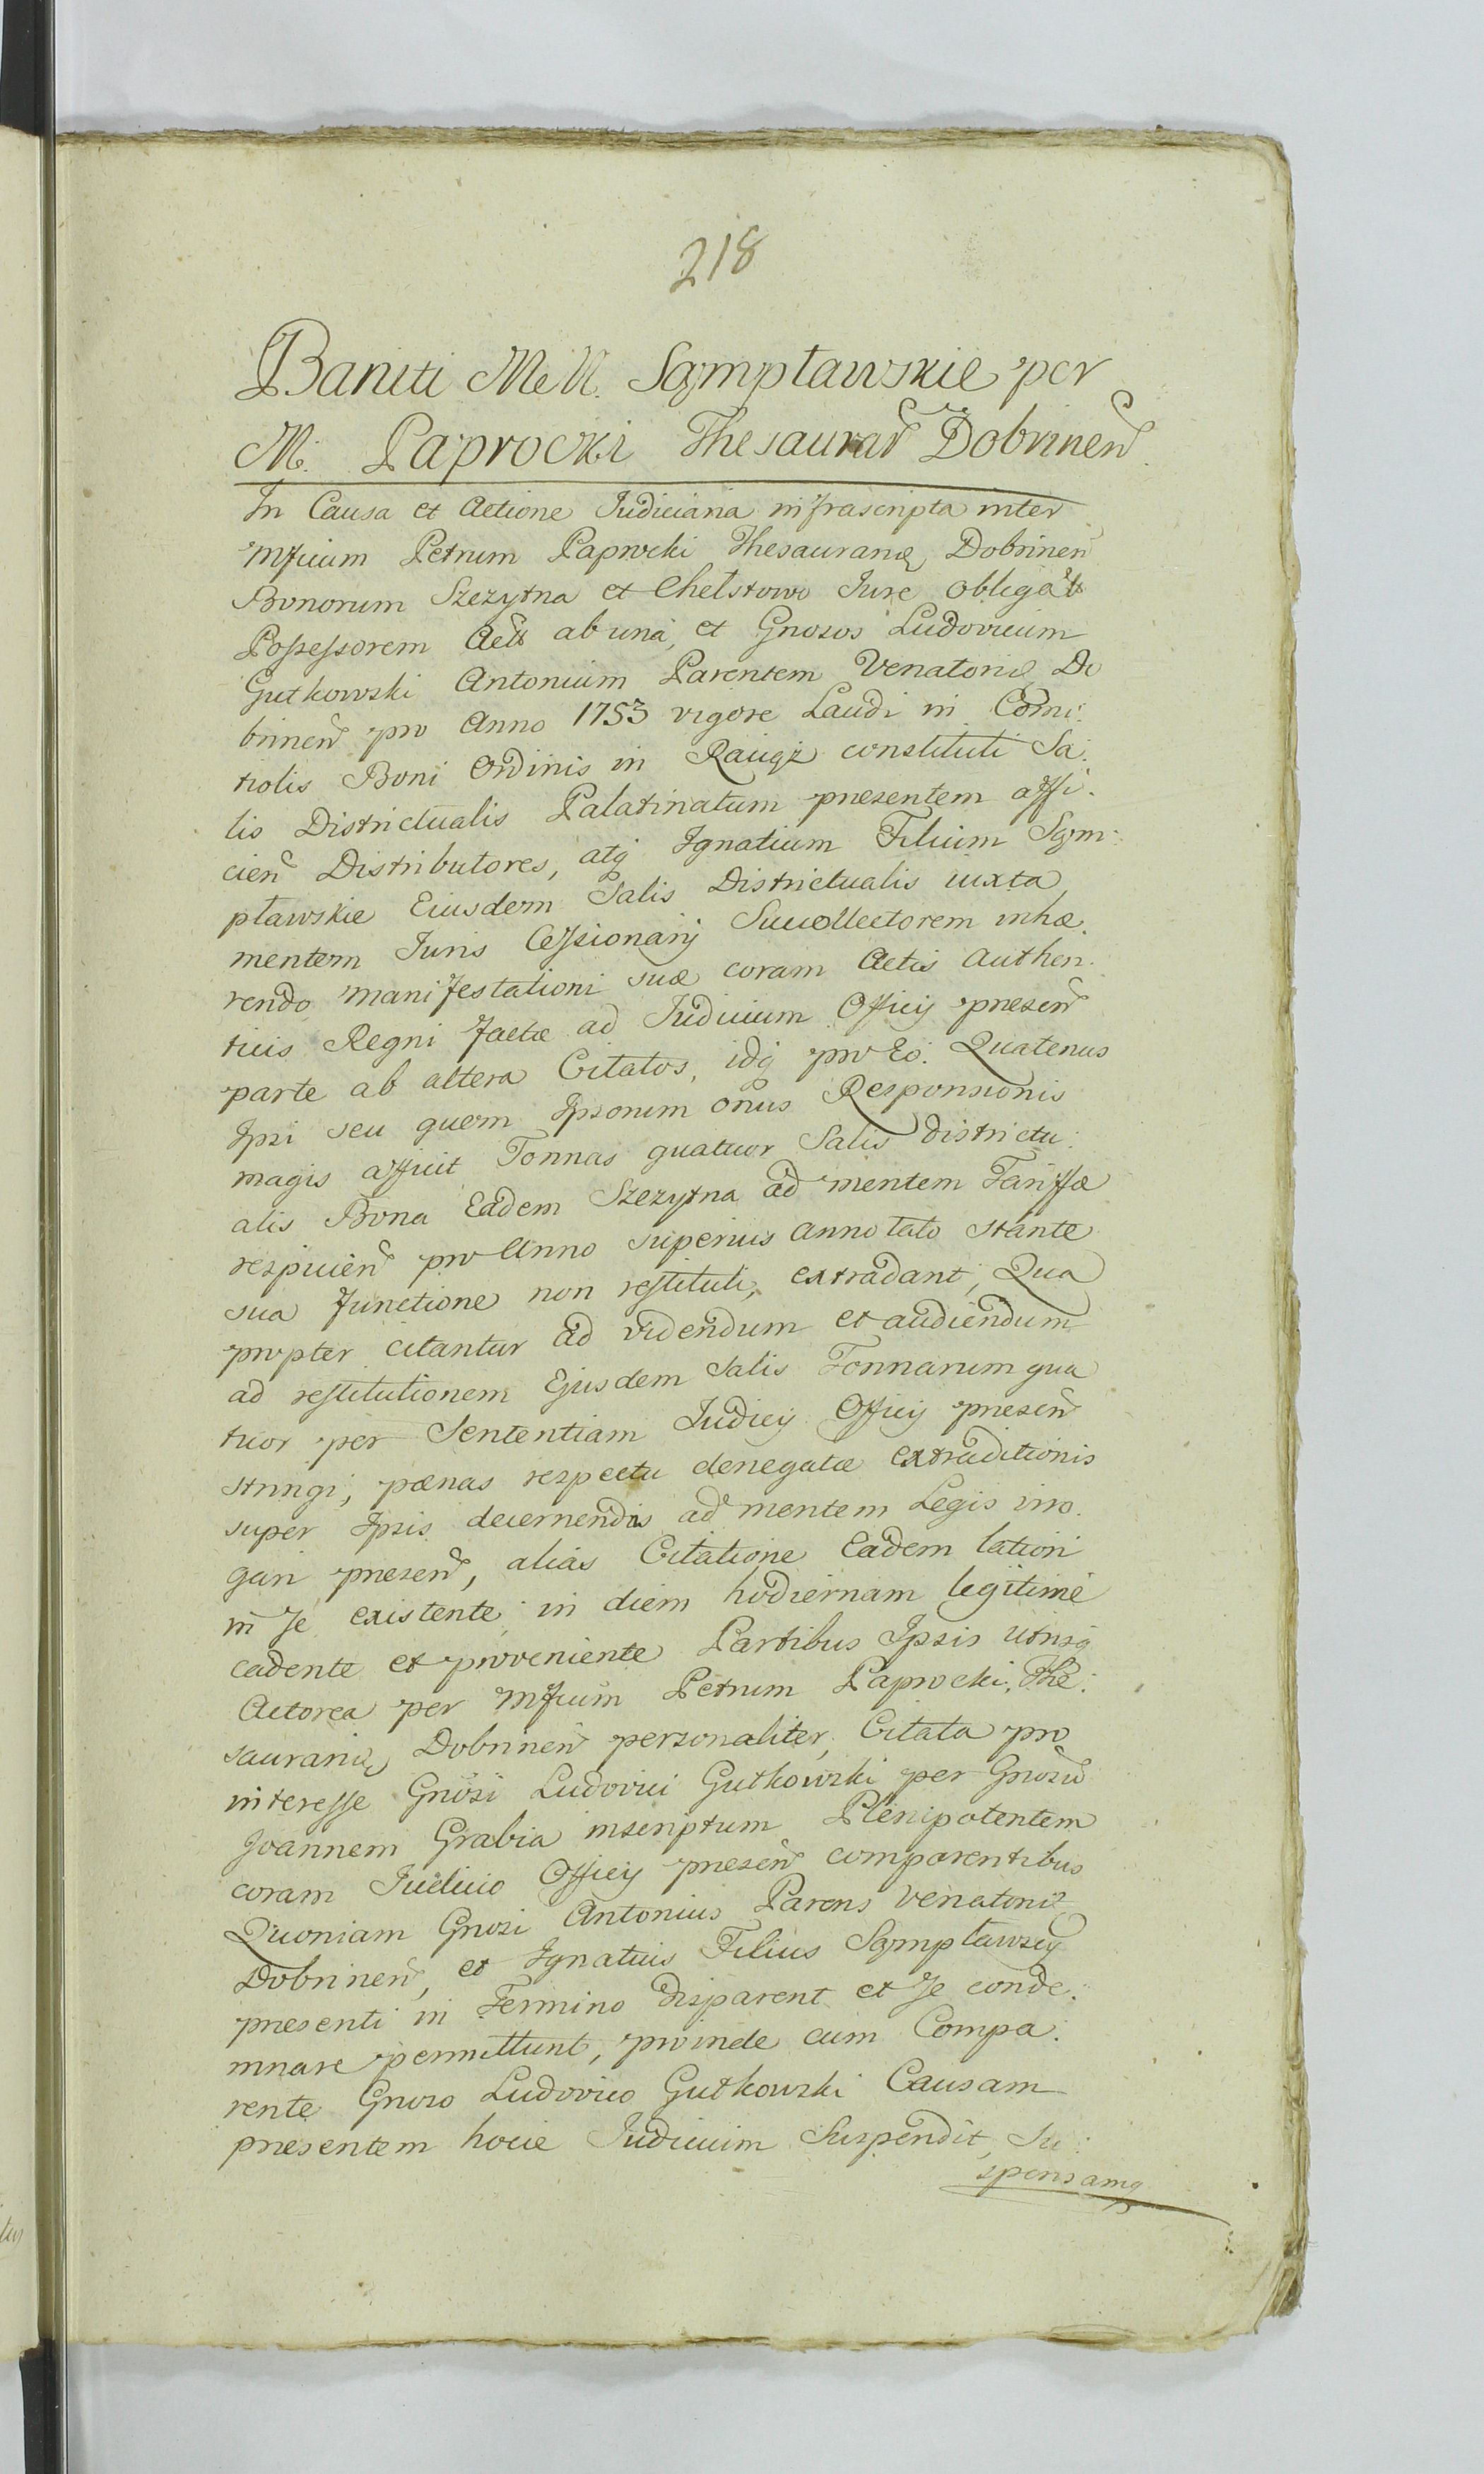 218
Baniti M. N. Sąmpławskie per
M. Paprocki Thesaurar̃ Dobrineñ.
In Causa et Actione Iudiciaria infrascripta inter
Mficum Petrum Paprocki Thesaurariũ Dobrineñ
Bonorum Szczytna et Chełstowo Jure obligat̃
Possessorem Act̃ ab una, et Gnosos Ludovicum
Gutkowski Antonium Parentem Venatoriũ Do
brineñ pro Anno 1753 vigore Laudi in Comi:
tiolis Boni Ordinis in Raciąż constituti Sa:
lis Districtualis Palatinatum presentem affi:
cieñ Distributores, atq Ignatium Filium Sąm:
pławskie Eiusdem Salis Districtualis iuxta
mentem Juris Cessionarij Succollectorem inhæ:
rendo manifestationi suæ coram Actis Authen:
ticis Regni factæ ad Iudicium Officij preseñ
parte ab altera Citatos, idq pro Eo: Quatenus
Ipsi seu quem Ipsorum onus Responsionis
magis afficit Tonnas quatuor Salis Districtu:
alis Bona Eadem Szczytna ad mentem Tariffæ
respicieñ pro Anno superius annotato stante
sua functione non restituti, extradant, Qua
propter citantur ad videndum et audiendum
ad restitutionem Ejusdem Salis Tonnarum qua
tuor per Sententiam Iudicij Officij preseñ
stringi, pænas respectu denegatæ extraditionis
super Ipsis decernendas ad mentem Legis irro:
gari preseñ, alias Citatione Eadem latiori
in se existente in diem hodiernam legitime
cadente et proveniente Partibus Ipsis utrisq
Actorea per Mficum Petrum Paprocki, The:
saurariũ Dobrineñ personaliter, Citata pro
interesse Gnosi Ludovici Gutkowski per Gnosũ
Joannem Grabia inscriptum Plenipotentem
coram Iudicio Officij preseñ comparentibus
Quoniam Gnosi Antonius Parens Venatoriũ
Dobrineñ, et Ignatius Filius Sąmpławscy
presenti in Termino disparent et se conde:
mnare permittunt, proinde cum Compa:
rente Gnoso Ludovico Gutkowski Causam
presentem hocce Iudicium Suspendit, Su:
spensamq